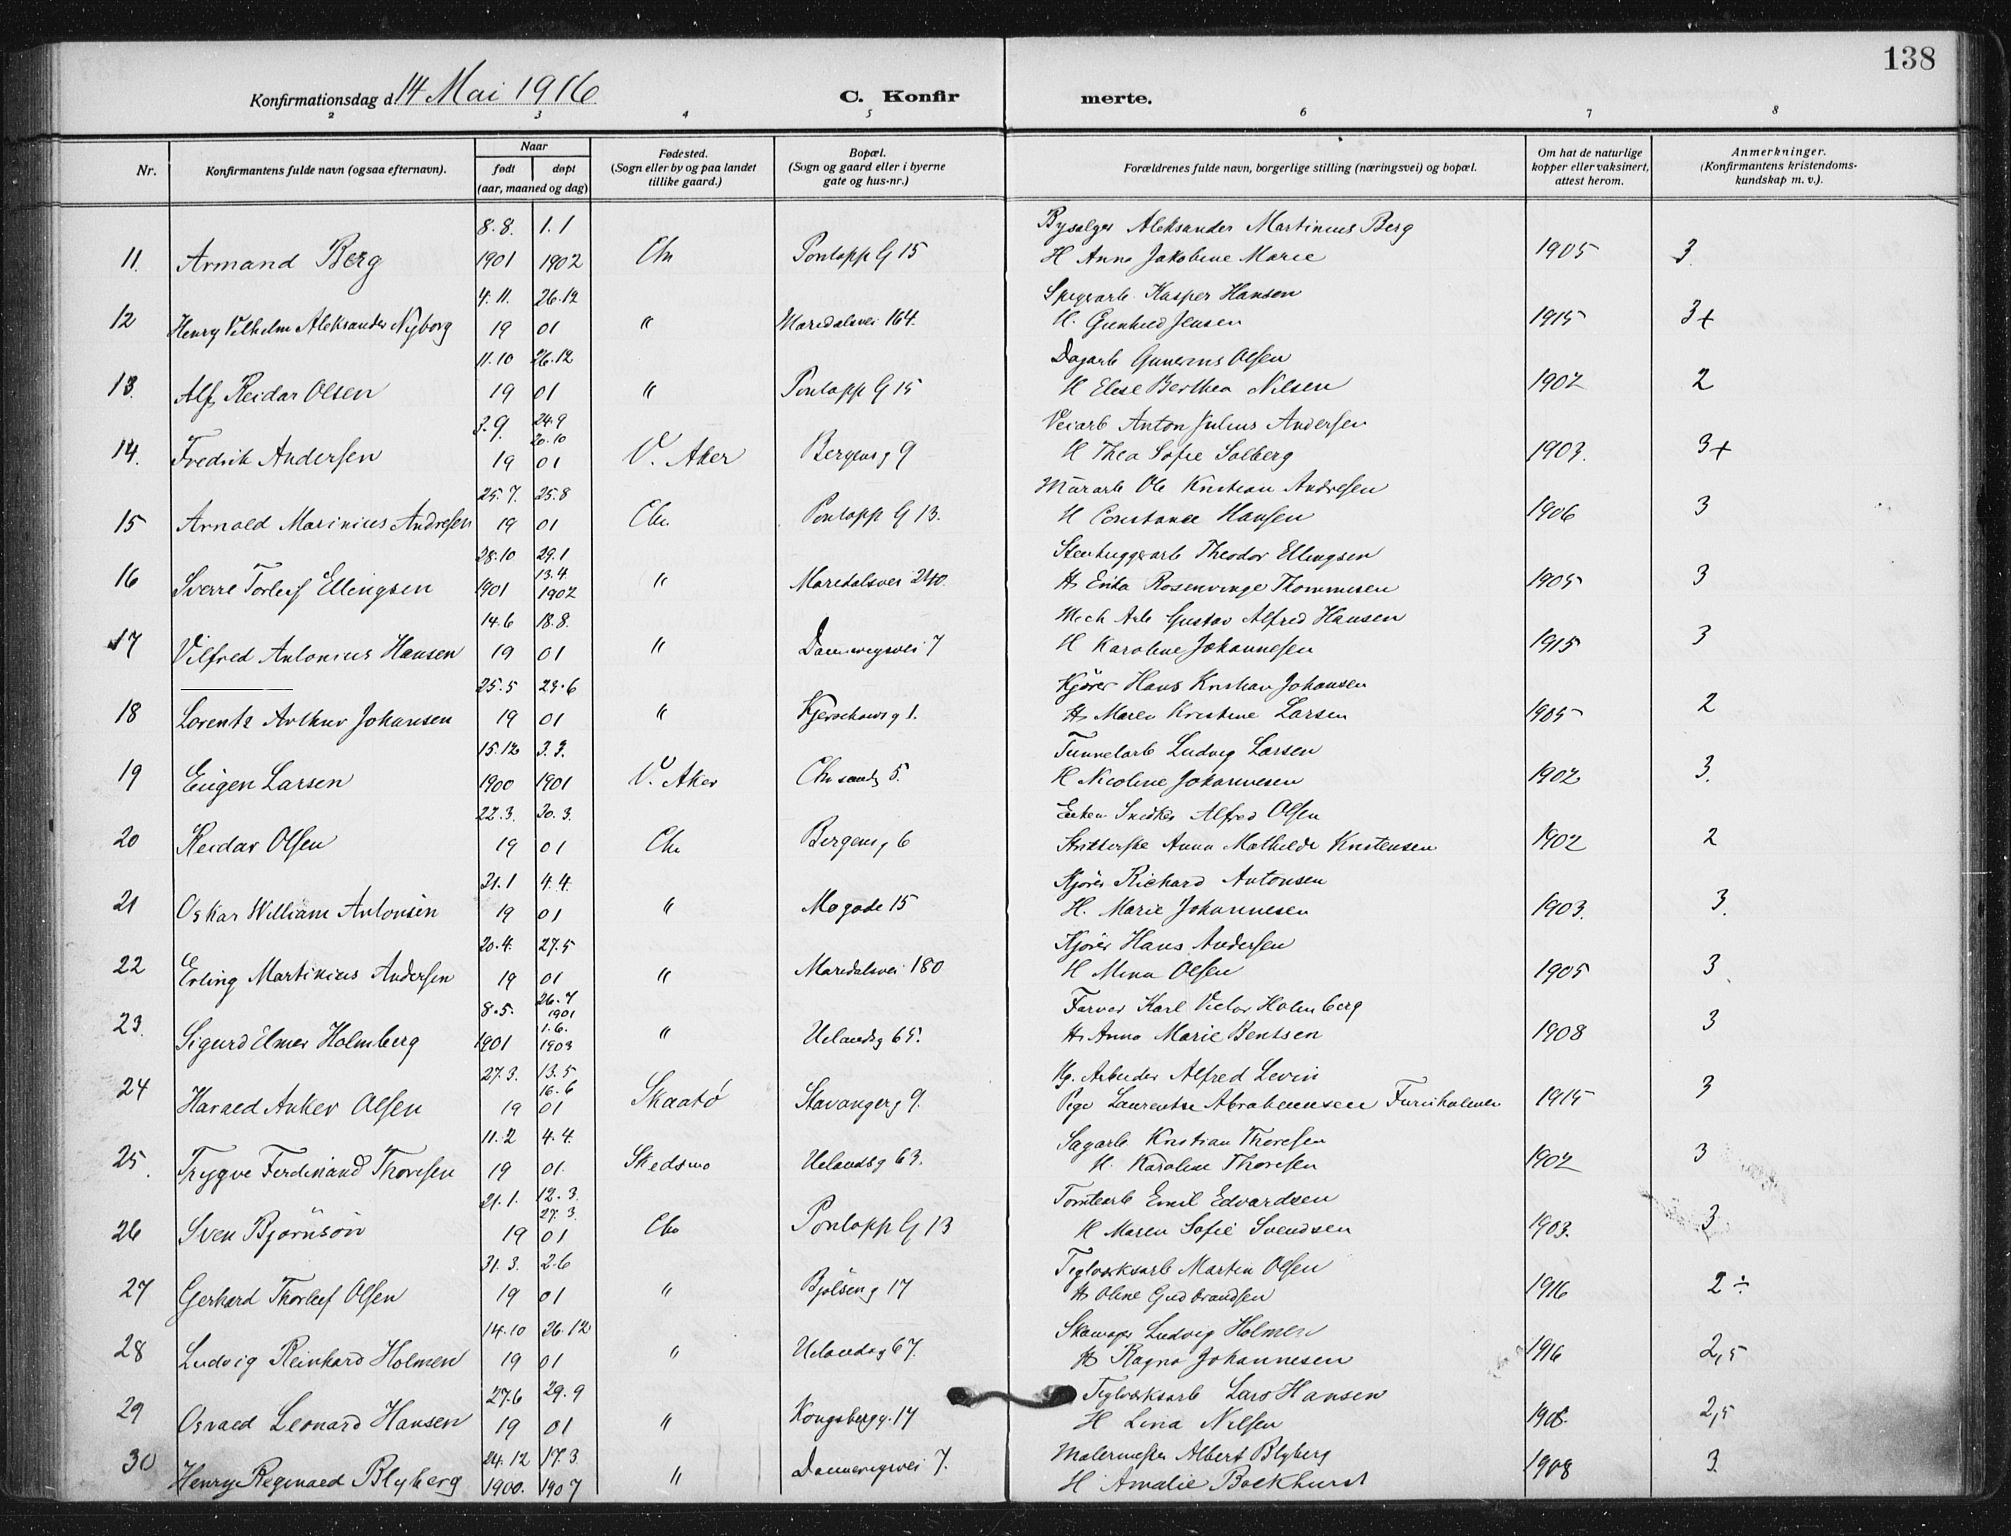 138
Konfirmationsdag d. 14 Mai 1916 C. Konfir merte.
2 3 4 5 6 7 8
Nr. Konfirmantens fulde navn (ogsaa efternavn). Naar født døpt (aar, maaned og dag) Fødested. (Sogn eller by og paa landet tillike gaard.) Bopæl. (Sogn og gaard eller i byerne gate og hus-nr.) Forældrenes fulde navn, borgerlige stilling (næringsvei) og bopæl. Om hat de naturlige kopper eller vaksinert, attest herom. Anmerkninger. (Konfirmantens kristendomskundskap m. v.).
8.8. 1.1 Bysælger Aleksander Martinius Berg
11. Armand Berg 1901 1902 Chr Pontopp G 15 H Anna Jakobine Marie 1905 3
4.11. 26.12 Spigrarb. Kasper Hansen
12 Henry Vilhelm Aleksander Nyborg 19 01 " Maridalsvei 164. H. Gunhild Jensen 1915 3+
11.10 26.12 Dagarb Gunerius Olsen
13. Alf Reidar Olsen 19 01 " Pontopp G 15 H Elise Berthea Nilsen 1902 2
3.9. 24.9 20.10 Veiarb Anton Julius Andersen
14. Fredrik Andersen 19 01 V. Aker Bergensg 9 H Thea Sofie Solberg 1903. 3+
25.7. 25.8 Murarb Ole Kristian Andresen
15 Arnold Marinius Andresen 19 01 Chr. Pontopp G 13. H Constance Hansen 1906 3
28.10 29.1 13.4 Stenhuggerarb Theodor Ellingsen
16 Sverre Torleif Ellingsen 1901 1902 " Maridalsvei 240. H Erika Rosenvinge Thommesen 1905 3
14.6 18.8. Mech Arb Gustav Alfred Hansen
17 Vilfred Antonius Hansen 19 01 " Dannevigsvei 7 H Karoline Johannesen 1915 3
25.5 23.6 Kjører Hans Kristian Johansen
18 Lorentz Arthur Johansen 19 01 " Kjerschowsg 1. H Maren Kristine Larsen 1905 2
15.12 3.3. Tunnelarb Ludvig Larsen
19 Eugen Larsen 1900 1901 V. Aker Chr sandg 5. H Nicoline Johannesen 1902 3.
22.3. 20.3. Enkem Snidker Alfred Olsen
20 Reidar Olsen 19 01 Chr Bergensg 6 Anna Mathilde Kristensen 1902 2
21.1 4.4. Kjører Richard Antonsen
21 Oskar William Antonsen 19 01 " Mogade 15 H. Marie Johannesen 1903. 3.
20.4. 27.5 Kjører Hans Andersen
22 Erling Martinius Andersen 19 01 " Maridalsvei 180 H Mina Olsen 1905 3
8.5. 26.7 1901 1.6. Farver Karl Victor Holmberg
23. Sigurd Elmer Holmberg 1901 1903 " Uelandsg 65. H Anna Marie Bentsen 1908 3
27.3. 13.5 16.6 Alfred Levin
24 Harald Anker Olsen 19 01 Skaatø Stavangerg 9. Pige Laurentse Abrahamsen Furuholmen 1915 3
11.2 4.4. Sagarb Kristian Thoresen
25. Trygve Ferdinand Thoresen 19 01. Skedsmo Uelandsg 63. H. Karoline Thoresen 1902 3
21.1. 12.3. 27.3. Tomtearb Emil Edvardsen
26 Sven Bjørnson 19 01 Chr Pontopp G 13 H Maren Sofie Svendsen 1903. 3
31.3. 2.6 Teglverksarb Martin Olsen
27 Gerhard Thorleif Olsen 19 01 " Bjølseng 17 H Oline Gudbrandsen 1916 2 ÷
14.10 26.12 Ludvig Holmen
28 Ludvig Reinhard Holmen 19 01 " Uelandsg 67. H Ragna Johannesen 1916 2,5
27.6 29.9 Teglverksarb Lars Hansen
29 Osvald Leonard Hansen 19 01 " Kongsbergg. 17 H Lina Nilsen 1908. 2,5
24.12 17.3 Malermester Albert Blyberg
30 Henry Reginald Blyberg 1900. 1907 " Dannevigsvei 7. H Amalie Bockhurst 1908 3